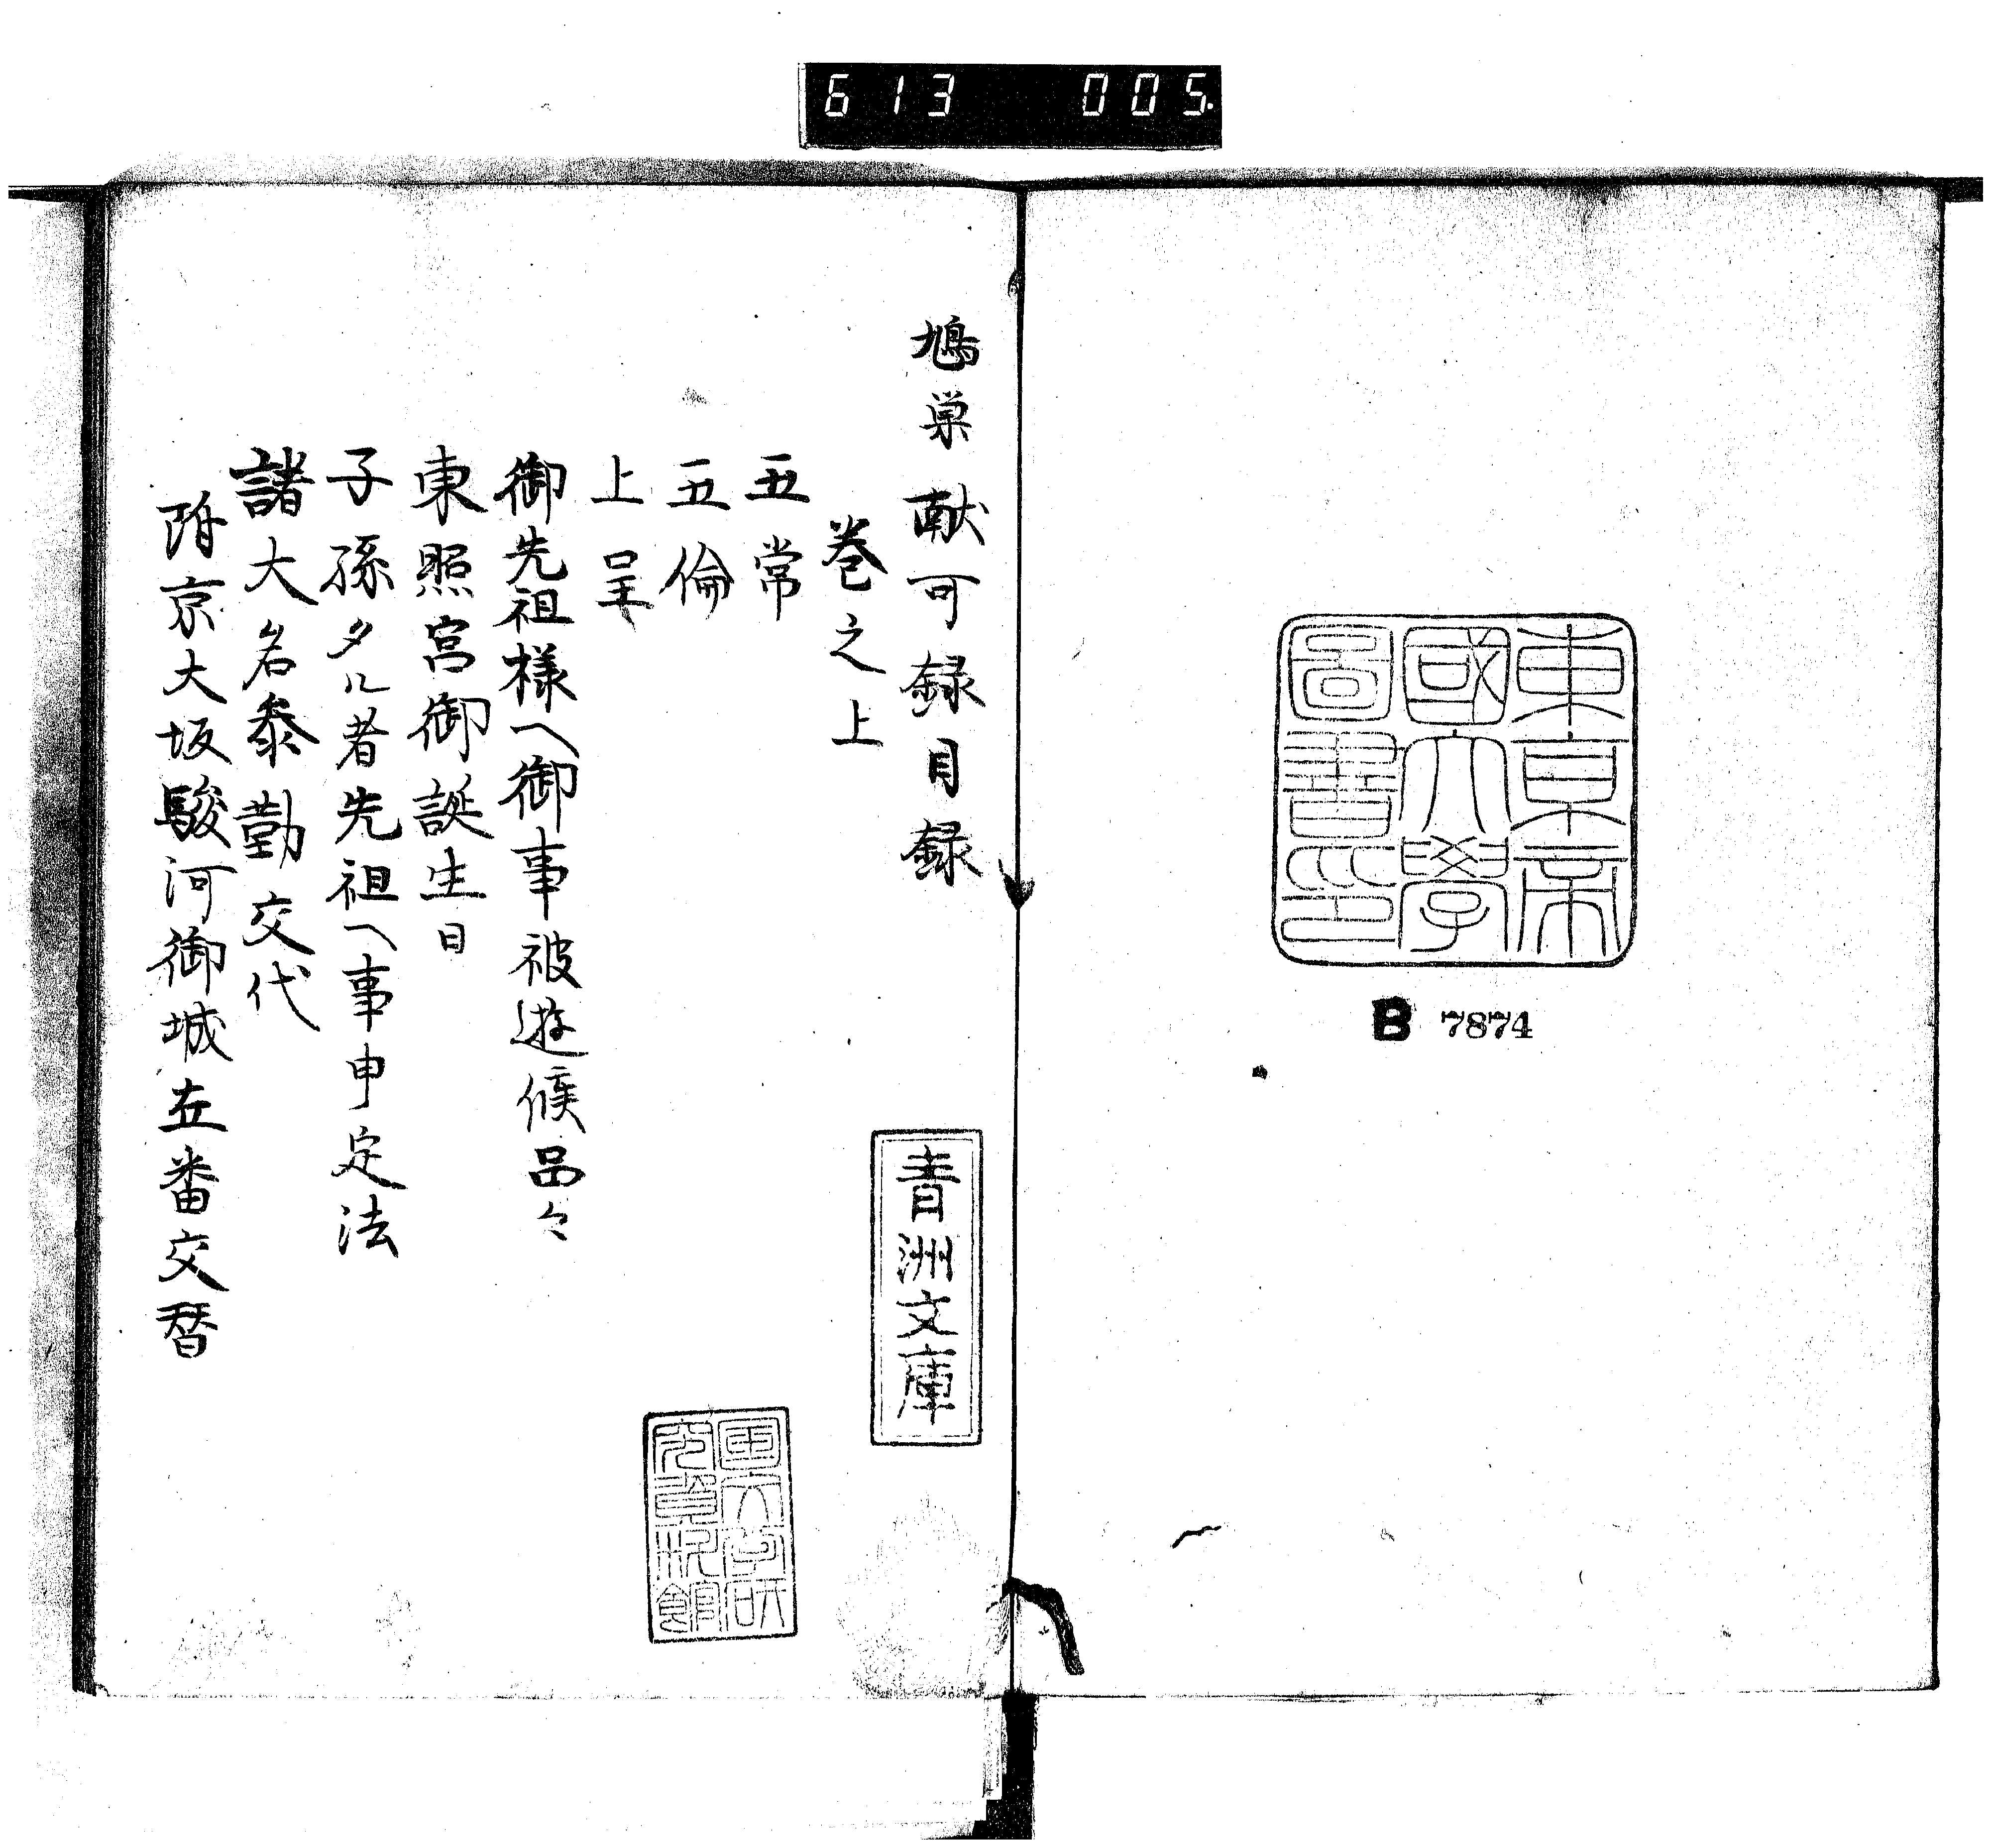 613 005
東京帝
國大學
圖書印
B 7874
鳩巣献可録目録
巻之上
五常
五倫
上呈
御先祖様ヘ御事被遊候品々
東照宮御誕生日
子孫タル者先祖ヘ事申定法
諸大名参勤交代
附京大坂駿河御城在番交替
青洲文庫